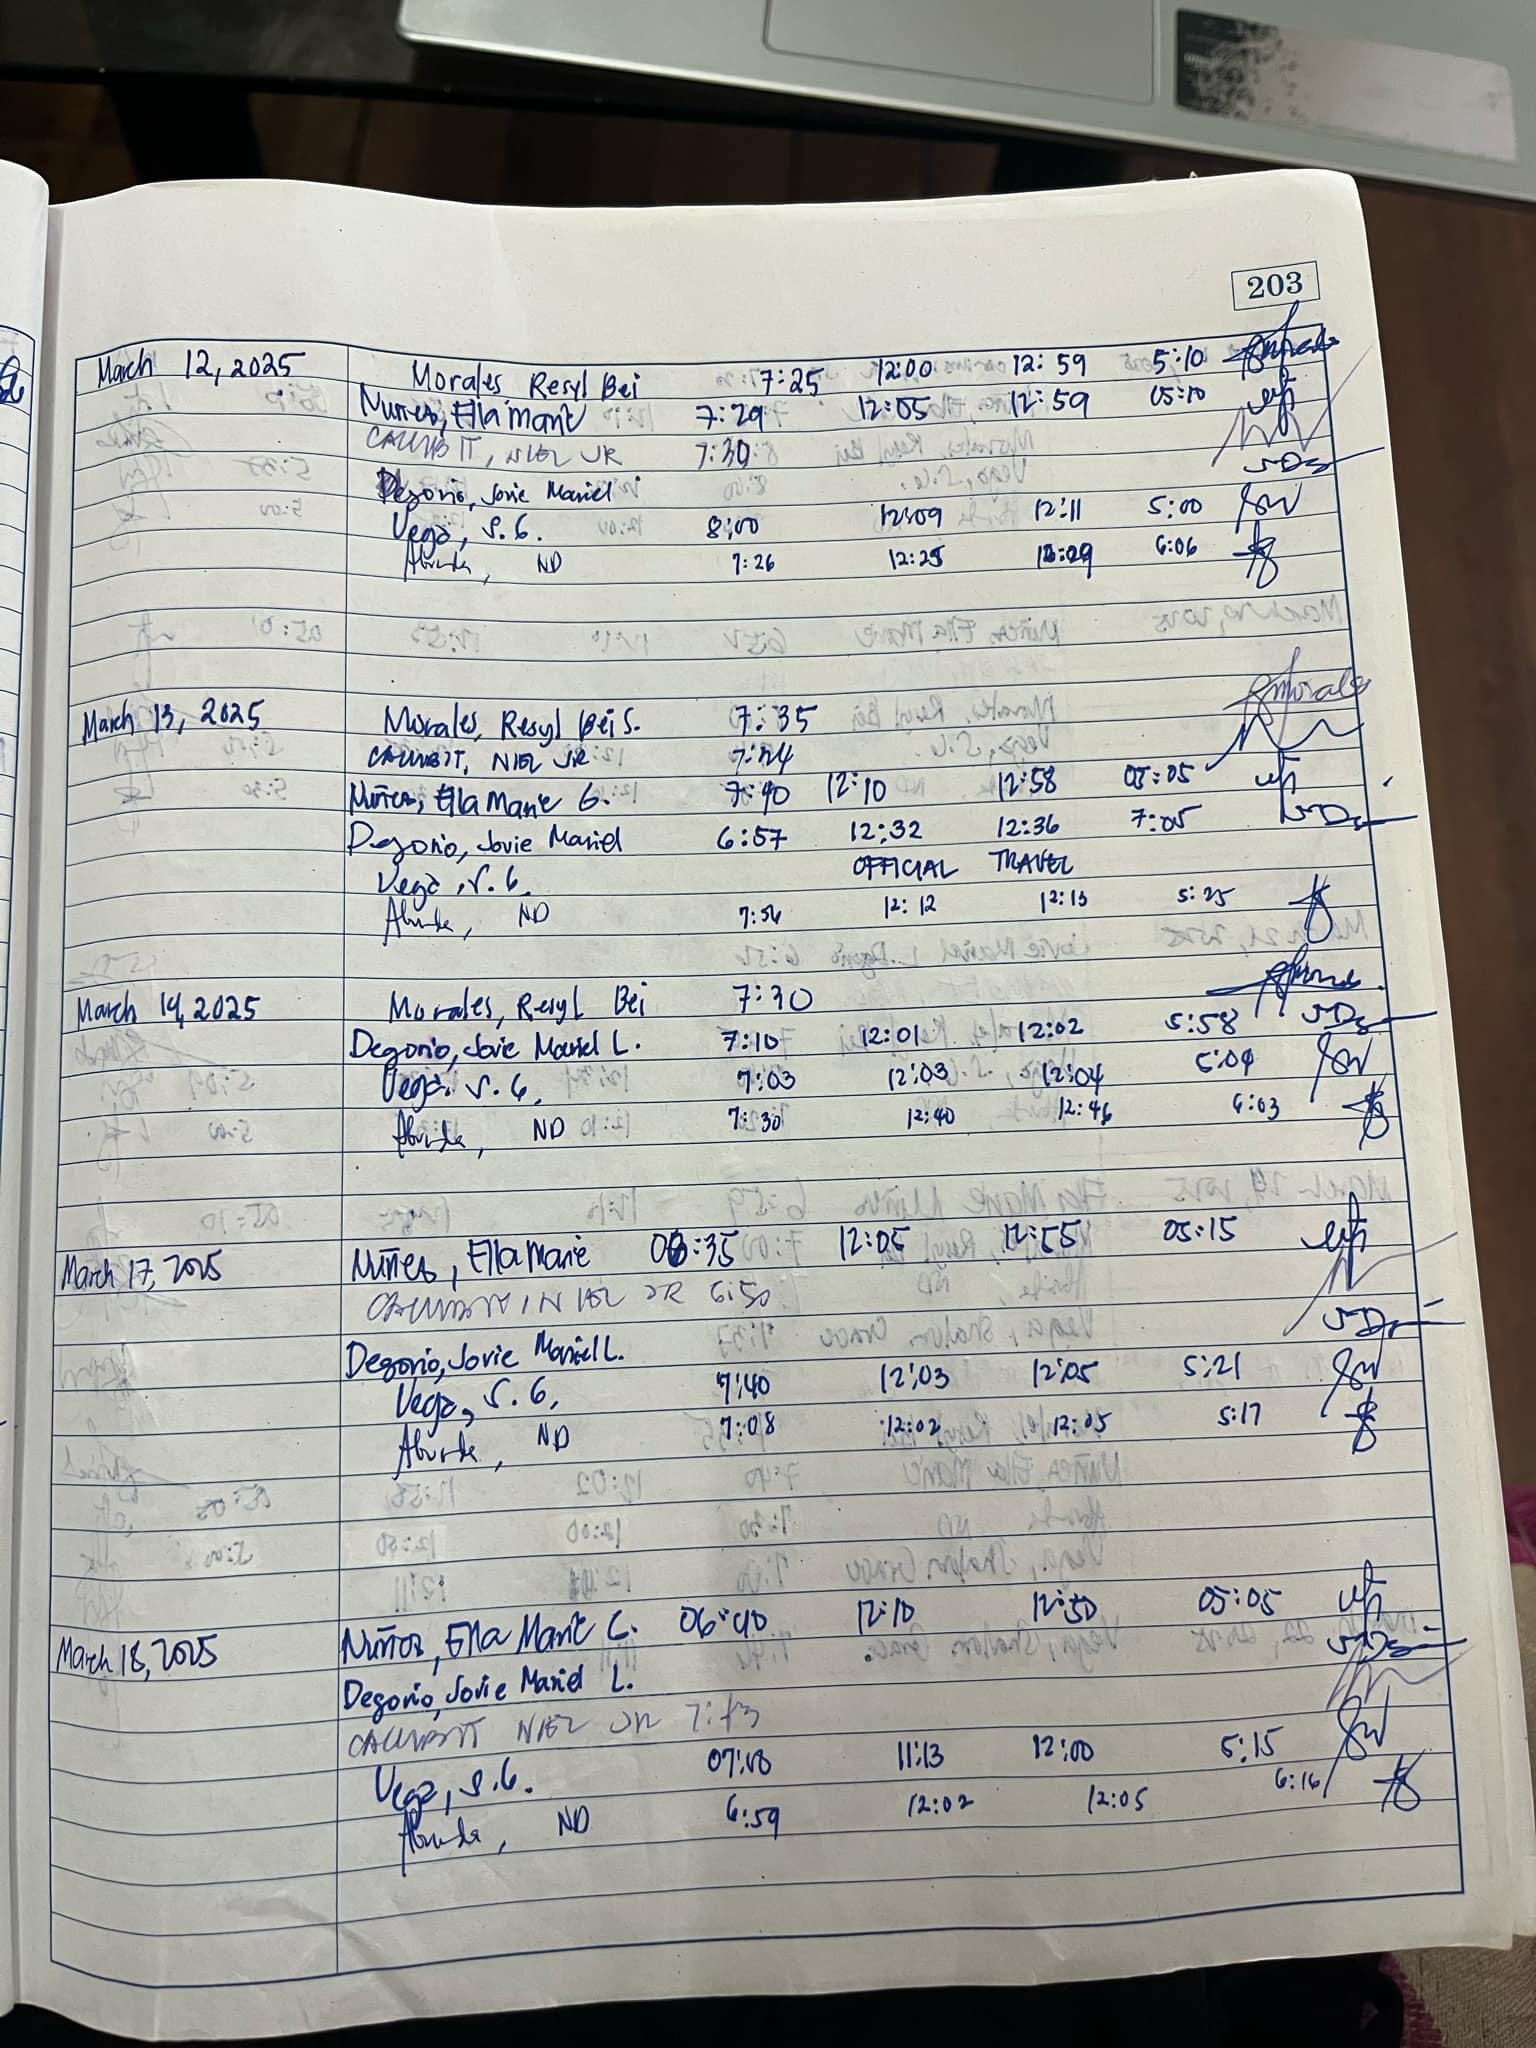 203
March 12, 2025 Morales Resyl Bei 7:25 12:00 12:59 5:10
Nuñez, Ella Marie 7:29 12:05 12:59 05:10
CALUMBIT, NIEL JR 7:30
Degorio, Jovie Mariel
Vega, S.G. 8:00 12:09 12:11 5:00
Abunda, ND 7:26 12:25 12:29 6:06
March 13, 2025 Morales, Resyl Bei S. 7:35
CALUMBIT, NIEL JR 7:24
Nuñez, Ella Marie G. 7:40 12:10 12:58 05:05
Degorio, Jovie Mariel 6:57 12:32 12:36 7:05
Vega, S.G. OFFICIAL TRAVEL
Abunda, ND 7:56 12:12 12:13 5:25
March 14, 2025 Morales, Resyl Bei 7:30
Degorio, Jovie Mariel L. 7:10 12:01 12:02 5:58
Vega, S.G. 7:03 12:03 12:04 5:04
Abunda, ND 7:30 12:40 12:46 6:03
March 17, 2025 Nuñez, Ella Marie 06:35 12:05 12:55 05:15
CALUMBIT, NIEL JR 6:50
Degorio, Jovie Mariel L.
Vega, S.G. 7:40 12:03 12:05 5:21
Abunda, ND 7:08 12:02 12:05 5:17
March 18, 2025 Nuñez, Ella Marie C. 06:40 12:10 12:50 05:05
Degorio, Jovie Mariel L.
CALUMBIT NIEL JR 7:43
Vega, S.G. 07:00 11:13 12:00 5:15
Abunda, ND 6:59 12:02 12:05 6:16